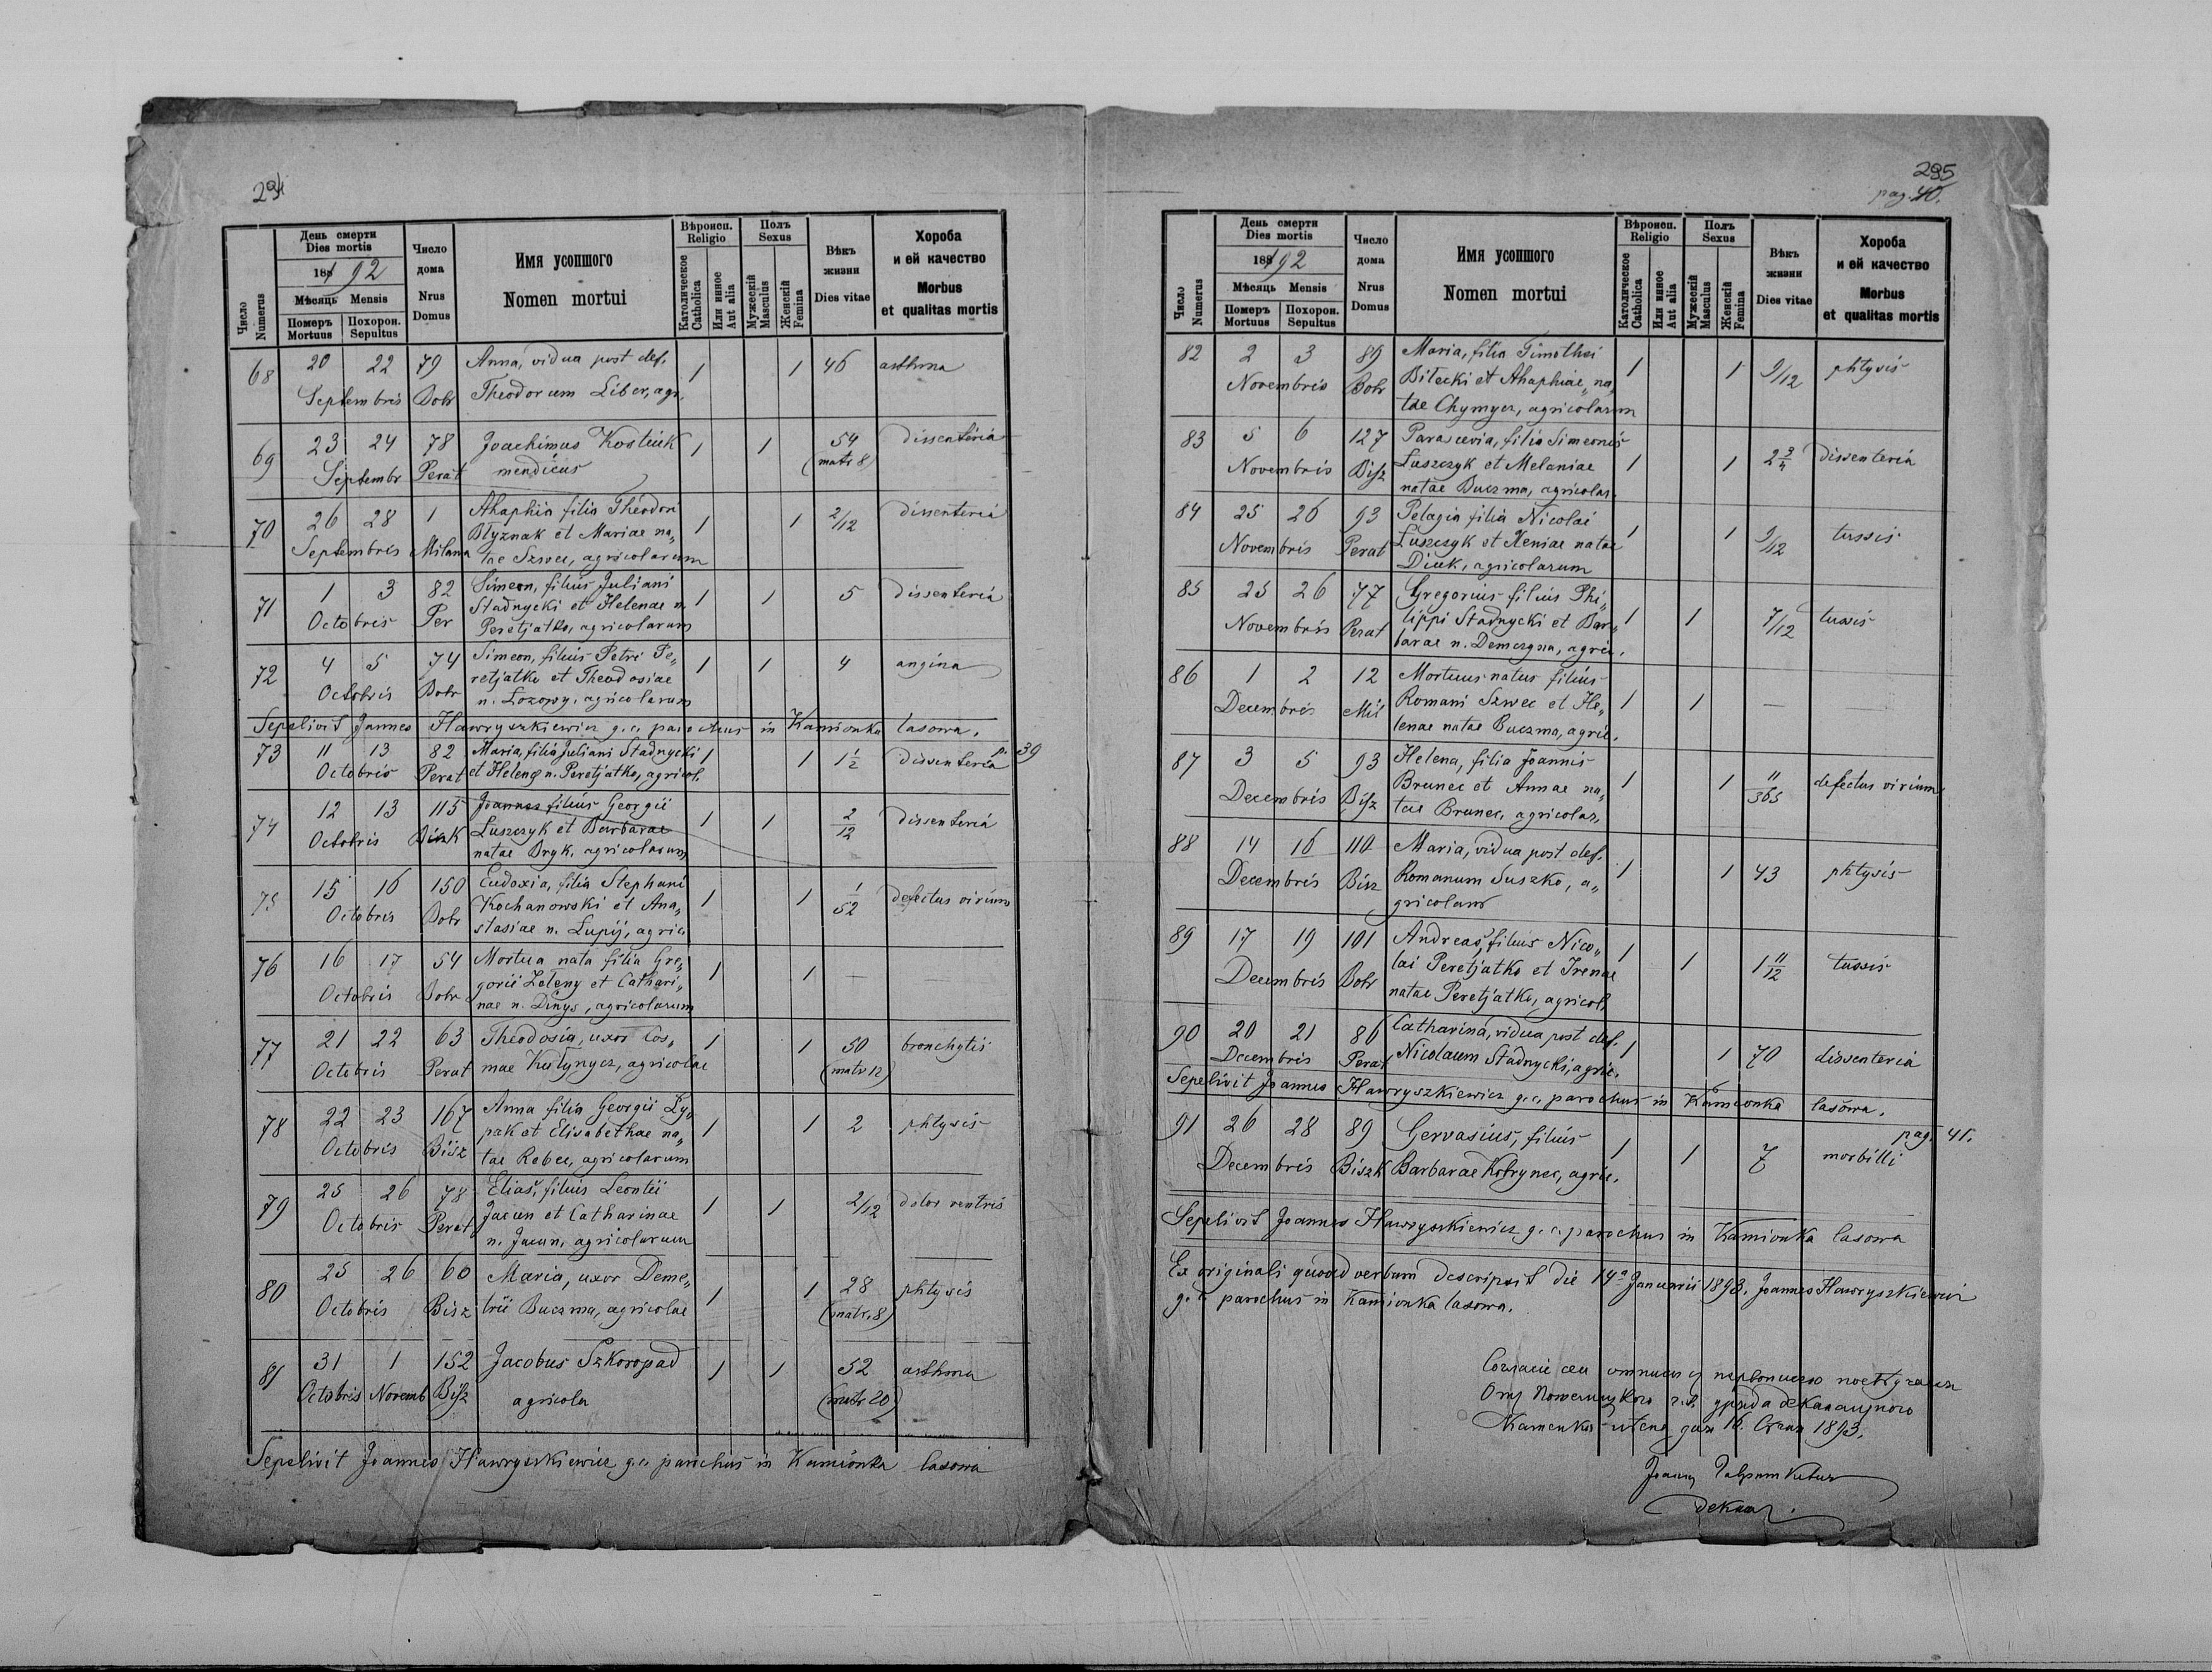 294
Число Numerus
День смерти Dies mortis
1892
Мѣсяць Mensis
Померъ Mortuus
Похорон. Sepultus
Число дома Nrus Domus
Имя усопшого Nomen mortui
Вѣроисп. Religio
Католическое Catholica
Или инное Aut alia
Полъ Sexus
Мужескій Masculus
Женскій Femina
Вѣкъ жизни Dies vitae
Хороба и ей качество Morbus et qualitas mortis
68 20 22 79 Anna, vidua post def. 1 1 46 asthma
Septembris Dobr Theodorum Liber, agr.
69 23 24 78 Joachimus Kostiuk 1 1 54 dissenteria
Septembr Perat mendicus (matr 8)
70 26 28 1 Ahaphia filia Theodori 1 1 2/12 dissenteria
Septembris Milana Błyznak et Mariae na„
tae Szwec, agricolarum
71 1 3 82 Simeon, filius Juliani 1 1 5 dissenteria
Octobris Per Stadnycki et Helenae n.
Peretjatko, agricolarum
72 4 5 74 Simeon, filius Petri Pe„ 1 1 4 angina
Octobris Dobr retjatko et Theodosiae
n. Lozowy, agricolarum
Sepelivit Joannes Hawryszkiewicz g. c. parochus in Kamionka lasowa.
p. 39
73 11 13 82 Maria, filia Juliani Stadnycki 1 1 1 1/2 dissenteria
Octobris Perat et Helenae n. Peretjatko, agricol.
74 12 13 115 Joannes filius Georgii 1 1 2/12 dissenteria
Octobris Biszk Łuszczyk et Barbarae
natae Bryk, agricolarum
75 15 16 150 Eudoxia, filia Stephani 1 1 1/52 defectus virium
Octobris Dobr Kochanowski et Ana„
stasiae n. Łupij, agric.
76 16 17 54 Mortua nata filia Gre„ 1 1 —
Octobris Dobr gorii Zeleny et Cathari„
nae n. Dinys, agricolarum
77 21 22 63 Theodosia, uxor Cos„ 1 1 50 bronchytis
Octobris Perat mae Kułynycz, agricolae (matr 12)
78 22 23 167 Anna filia Georgii Ły„ 1 1 2 phtysis
Octobris Bisz pak et Elisabethae na„
tae Rebec, agricolarum
79 25 26 78 Elias, filius Leontii 1 1 2/12 dolor ventris
Octobris Perat Jacun et Catharinae
n. Jacun, agricolarum
80 25 26 60 Maria, uxor Deme„ 1 1 28 phtysis
Octobris Bisz trii Buczma, agricolae (matr. 8)
81 31 1 152 Jacobus Szkoropad 1 1 52 asthma
Octobris Novemb Bisz agricola (matr 20)
Sepelivit Joannes Hawryszkiewicz g. c. parochus in Kamionka lasowa
295
pag. 40.
Число Numerus
День смерти Dies mortis
1892
Мѣсяць Mensis
Померъ Mortuus
Похорон. Sepultus
Число дома Nrus Domus
Имя усопшого Nomen mortui
Вѣроисп. Religio
Католическое Catholica
Или инное Aut alia
Полъ Sexus
Мужескій Masculus
Женскій Femina
Вѣкъ жизни Dies vitae
Хороба и ей качество Morbus et qualitas mortis
82 2 3 89 Maria, filia Timothei 1 1 9/12 phtysis
Novembris Dobr Bilecki et Ahaphiae, na„
tae Chymycz, agricolarum
83 5 6 127 Parascevia, filia Simeonis 1 1 2 3/4 dissenteria
Novembris Bisz Łuszczyk et Melaniae
natae Buczma, agricolar.
84 25 26 93 Pelagia filia Nicolai 1 1 9/12 tussis
Novembris Perat Łuszczyk et Xeniae natae
Diuk, agricolarum
85 25 26 77 Gregorius filius Phi„ 1 1 7/12 tussis
Novembris Perat lippi Stadnycki et Bar„
barae n. Demczyna, agric.
86 1 2 12 Mortuus natus filius 1 1 — —
Decembris Mil Romani Szwec et He„
lenae natae Buczma, agric.
87 3 5 93 Helena, filia Joannis 1 1 11/365 defectus virium
Decembris Bisz Brunec et Annae na„
tae Brunec, agricolar.
88 14 16 110 Maria, vidua post def. 1 1 43 phtysis
Decembris Bisz Romanum Suszko, a„
gricolam
89 17 19 101 Andreas, filius Nico„ 1 1 1 11/12 tussis
Decembris Dobr lai Peretjatko et Irenae
natae Peretjatko, agricol.
90 20 21 86 Catharina, vidua post def. 1 1 70 dissenteria
Decembris Perat Nicolaum Stadnycki, agric.
Sepelivit Joannes Hawryszkiewicz g. c. parochus in Kamionka lasowa.
pag. 41.
91 26 28 89 Gervasius, filius 1 1 7 morbilli
Decembris Biszk Barbarae Kobrynec, agric.
Sepelivit Joannes Hawryszkiewicz g. c. parochus in Kamionka lasowa
Ex originali quoad verbum descripsit die 14a Januarii 1893. Joannes Hawryszkiewicz
g. c. parochus in Kamionka lasowa.
1893.
Деканъ.